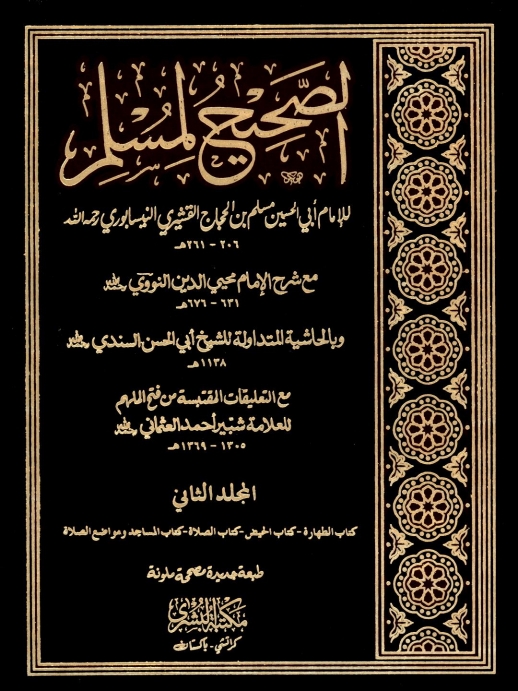 الصحيح لمسلم
للإمام أبي الحسين مسلم بن الحجاج القشيري النيسابوري رحمه الله
٢٠٦ - ٢٦١هـ
مع شرح الإمام محيي الدين النووي رحمه الله
٦٣١ - ٦٧٦هـ
وبالحاشية المتداولة للشيخ أبي الحسن السندي رحمه الله
١١٣٨هـ
مع التعليقات المقتبسة من فتح الملهم
للعلامة شبير أحمد العثماني رحمه الله
١٣٠٥ - ١٣٦٩هـ
المجلد الثاني
كتاب الطهارة - كتاب الحيض - كتاب الصلاة - كتاب المساجد ومواضع الصلاة
طبعة جديدة مصححة ملونة
مكتبة البشرى
كراتشي - باكستان